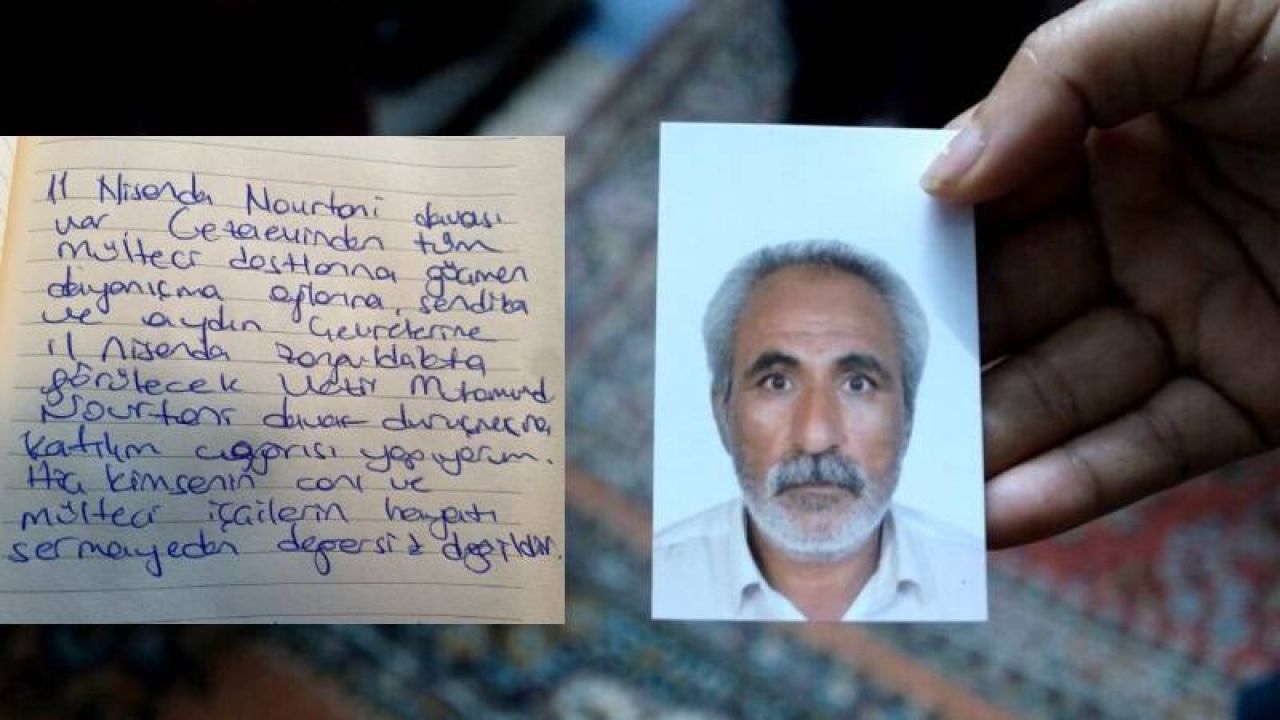 11 Nisanda Nourtani davası
var, Cezaevinden tüm
mülteci dostlarına göçmen
dayanışma ağlarına, sendika
ve aydın çevrelerine
11 Nisanda Zonguldakta
görülecek Vezir Mohamad
Nourtani davası duruşmasına
katılım çağrısı yapıyorum.
Hiç kimsenin canı ve
mülteci işçilerin hayatı
sermayeden değersiz değildir.